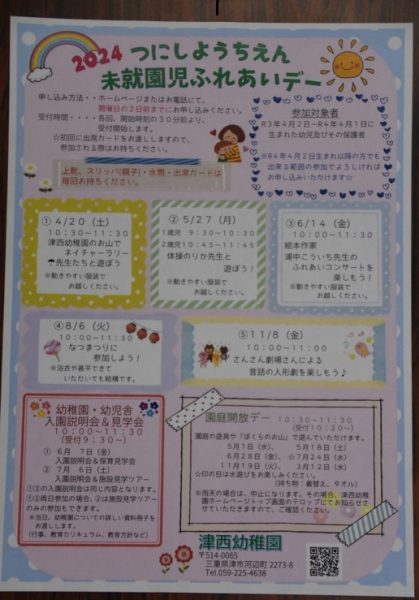 2024 つにしようちえん
未就園児ふれあいデー
申し込み方法・・ホームページまたはお電話にて、
開催日の2日前までにお申し込みください。
受付時間・・・・各回、開始時刻の30分前より、
受付開始します。
☆初回に出席カードをお渡ししますので、
参加される際はお持ちください。
上靴、スリッパ(親子)・水筒・出席カードは
毎回お持ちください。
参加対象者
R3年4月2日～R4年4月1日に
生まれた幼児及びその保護者
※R4年4月2日生まれ以降の方でも
出来る範囲の参加でよろしければ
お申し込みいただけます♡
① 4/20（土）
10：30～11：30
津西幼稚園のお山で
ネイチャーラリー
☂先生たちと遊ぼう
※動きやすい服装で
お越しください。
② 5/27（月）
1歳児 9：30～10：30
2歳児 10：45～11：45
体操のりか先生と
遊ぼう！
※動きやすい服装で
お越しください。
③ 6/14（金）
10：00～11：30
絵本作家
浦中こういち先生の
ふれあいコンサートを
楽しもう！
※動きやすい服装で
お越しください。
④ 8/6（火）
10：00～11：30
なつまつりに
参加しよう！
※浴衣や甚平できて
いただいても結構です。
⑤ 11/8（金）
10：00～11：00
さんさん劇場さんによる
昔話の人形劇を楽しもう♪
幼稚園・幼児舎
入園説明会＆見学会
10：00～11：30
（受付9：30～）
① 6月 7日（金）
入園説明会＆保育見学会
② 7月 6日（土）
入園説明会＆施設見学ツアー
①②の入園説明会は同じ内容となります。
①②両日参加の場合、②は施設見学ツアー
のみの参加もできます。
※当日、幼稚園についての詳しい資料冊子を
お渡しします。
（行事、教育カリキュラム、教育方針など）
園庭開放デー 10：30～11：30
（受付10：20～）
園庭の遊具や「ぼくらのお山」で遊んでいただけます。
5月1日（水）、 5月18日（土）
6月28日（金）、 ☆7月24日（水）
11月19日（火）、 3月12日（水）
☆印の日は水遊びをお楽しみください。
（持ち物：着替え、タオル）
※雨天の場合は、中止になります。その場合、津西幼稚園
ホームページトップ画面のテロップにてお知らせさ
せていただきますので、ご確認ください。
津西幼稚園
〒514-0065
三重県津市河辺町 2273-8
Tel.059-225-4638